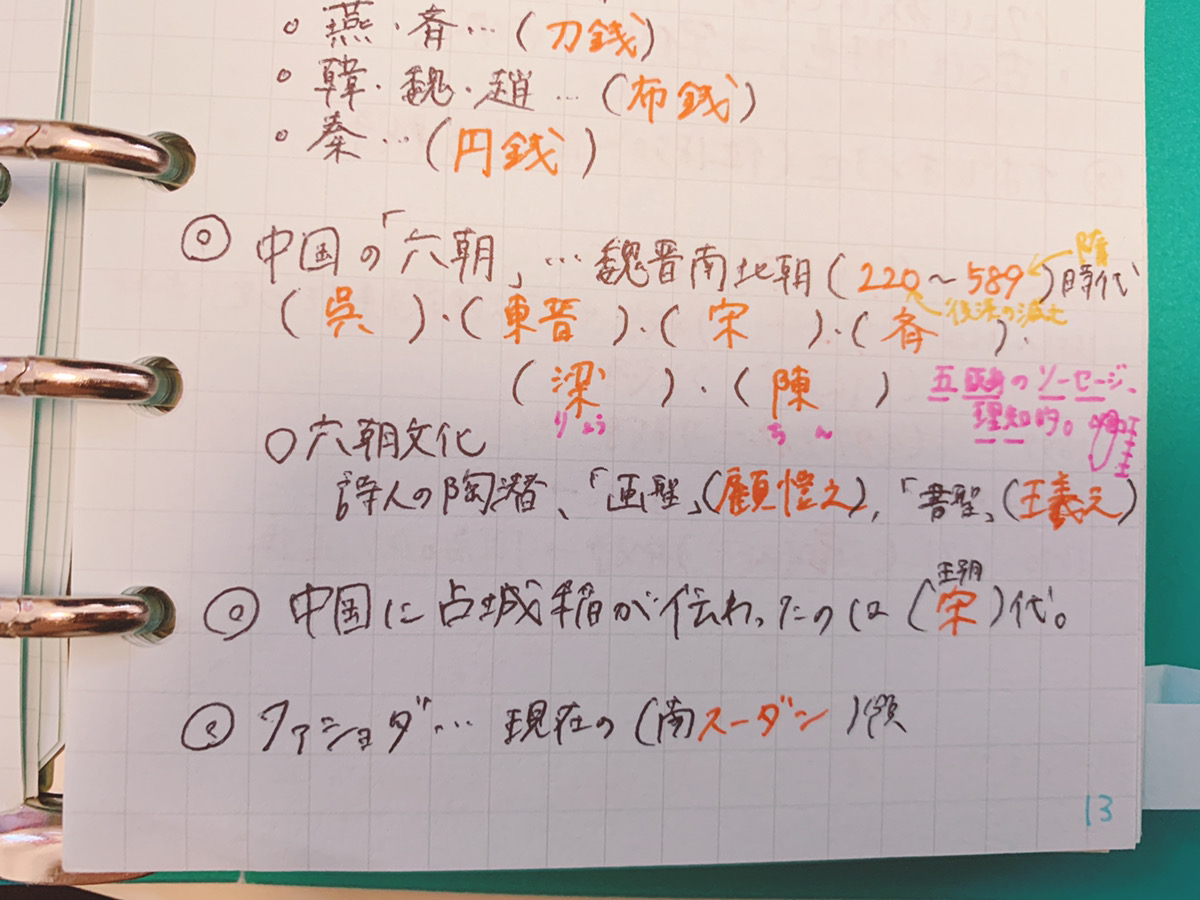 ○ 燕・斉…(刀銭)
○ 韓・魏・趙…(布銭)
○ 秦…(円銭)
◎ 中国の「六朝」…魏晋南北朝(220〜589)時代
隋
後漢の滅亡
(呉)・(東晋)・(宋)・(斉)・
(梁)・(陳)
りょう ちん
五 のソーセージ、
理知的。
○六朝文化
詩人の陶潜、「画聖」(顧愷之)、「書聖」(王羲之)
◎ 中国に占城稲が伝わったのは(宋)代。
王朝
◎ ファショダ… 現在の(南スーダン)領
13